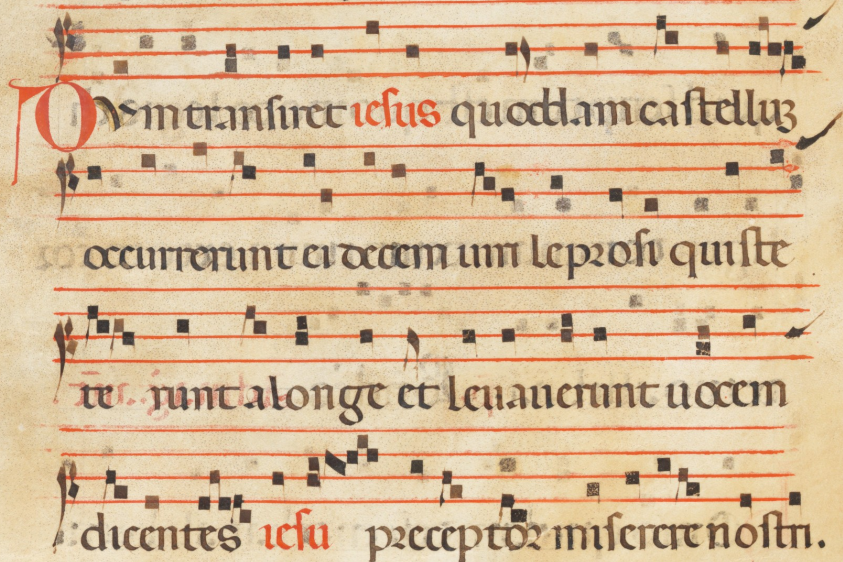 Dum transiret iesus quoddam castellum
occurrerunt ei decem uiri leprosi qui ste
te runt alonge et leuauerunt uocem
dicentes iesu preceptor miserere nostri.